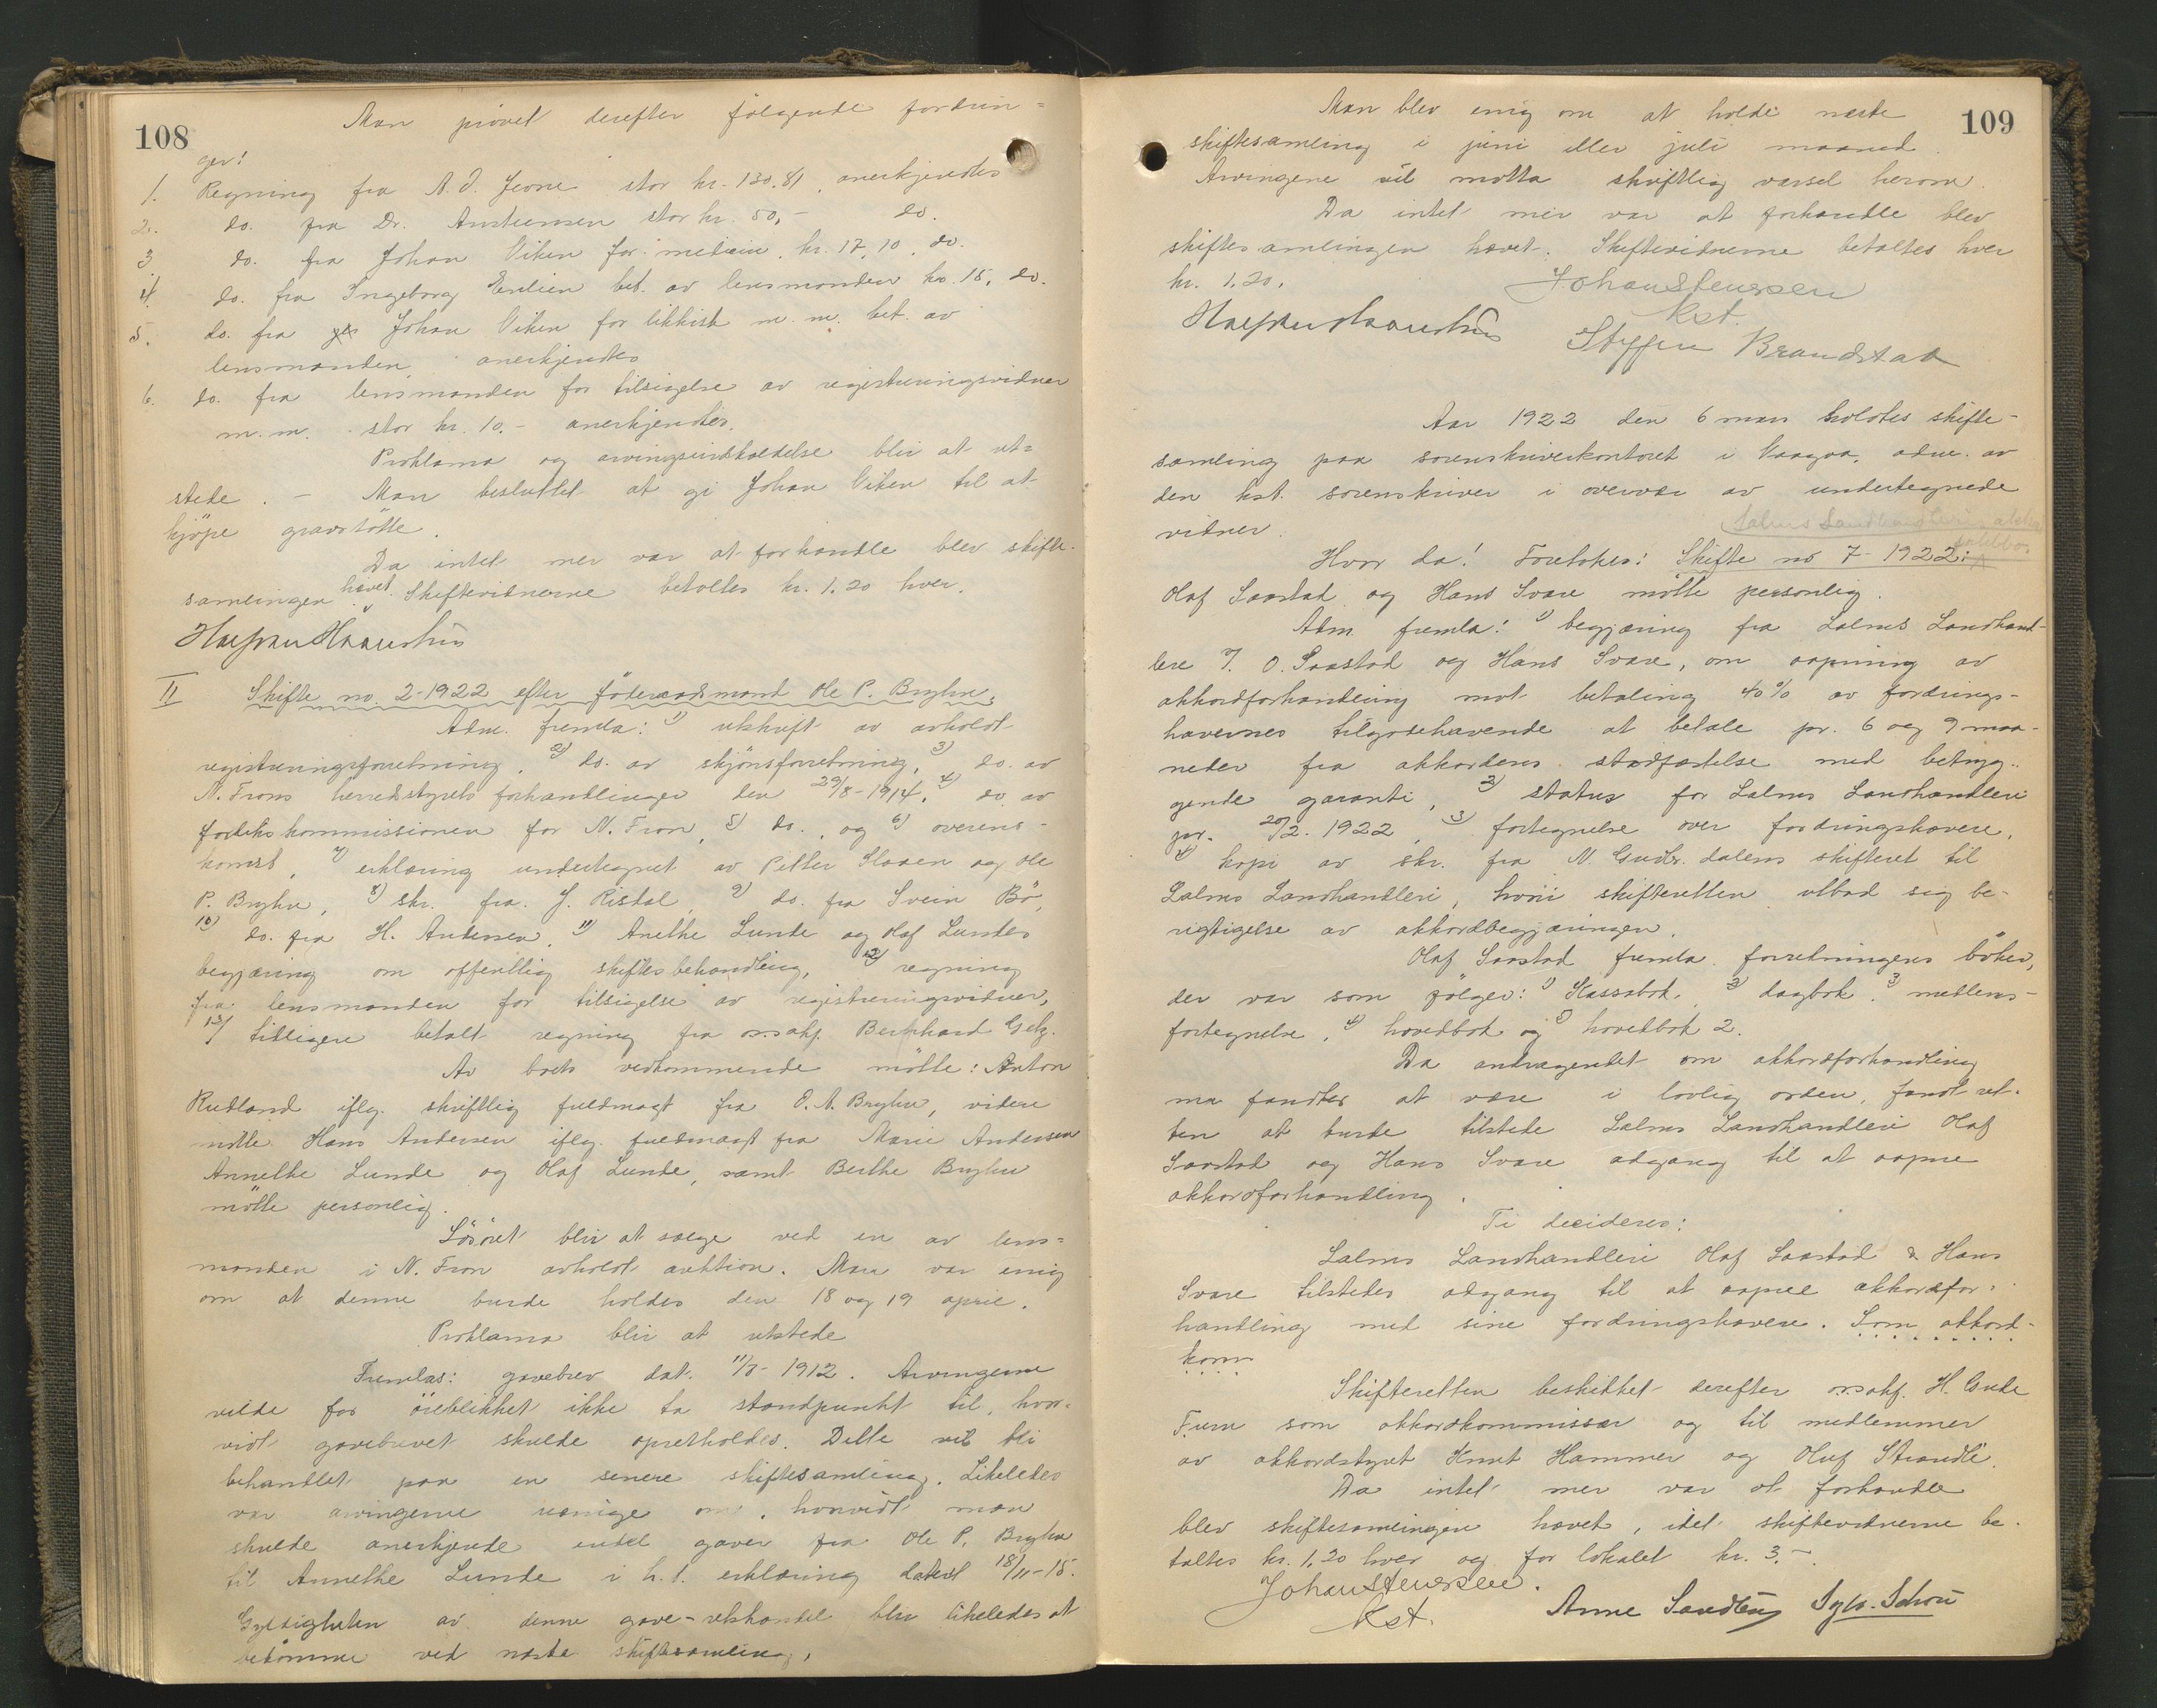 108
Man prövet derefter følgende fordrin=
ger:
1. Regning fra A. J. Jeone stor kr. 130.81, anerkjendtes
2. do. fra Dr. Austeensen stor kr. 50,- do.
3. do. fra Johan Viken for medicin, kr. 17,10, do.
4. do. fra Ingeborg Enlien bet. av lensmanden kr. 15, do.
5. do. fra Johan Viken for likkiste m.m. bet. av
lensmanden, anerkjendtes
6. do. fra lensmanden for tilsigelse av registreringsvidner
m.m. stor kr. 10.- anerkjendtes.
Proklama og arvingsindkaldelse blir at ut=
stede. - Man besluttet at gi Johan Viken til at
kjöpe gravstötte.
Da intet mer var at forhandle blev skifte-
samlingen hævet. Skiftevidnerne betaltes kr. 1.20 hver.
II Skifte no. 2-1922 efter föderaadsmand Ole P. Bryhn.
Adm. fremla: 1) utskrift av avholdt
registreringsforretning, 2) do. av skjönsforretning, 3) do. av
N. Frons herredstyrets forhandlinger den 29/8-1914, 4) do. av
forlikskommissionen for N. Fron, 5) do., og 6) overens-
komst, 7) erklæring undertegnet av Petter Slaaen og Ole
P. Bryhn, 8) skr. fra J. Risdal, 9) do. fra Svein Bö,
10) do. fra H. Andersen, 11) Anethe Lunde og Olaf Lundes
begjæring om offentlig skiftebehandling, 12) regning
fra lensmanden for tilsigelse av registreringsvidner,
13) tidligere betalt regning fra o.r.sakf. Bernhard Getz.
Av boets vedkommende mötte: Anton
Rudland iflg. skriftlig fuldmagt fra O. A. Bryhn, videre
mötte Hans Andersen iflg. fuldmagt fra Marie Andersen
Annethe Lunde og Olaf Lunde, samt Berthe Bryhn
mötte personlig.
Lösöret blir at sælge ved en av lens=
manden i N. Fron avholdt auktion. Man var enig
om at denne burde holdes den 18 og 19 april.
Proklama blir at utstede
Fremlas: gavebrev dat. 11/7-1912. Arvingerne
vilde for öieblikket ikke ta standpunkt til, hvor-
vidt gavebrevet skulde opretholdes. Dette vil bli
behandlet paa en senere skiftesamling. Likeledes
var arvingerne uenige om, hvorvidt man
skulde anerkjende endel gaver fra Ole P. Bryhn
til Annethe Lunde i h. t. erklæring datert 18/11-15.
Gyldigheten av denne gave-utskandel blir likeledes at
bedömme ved næste skiftesamling.
109
Man blev enig om at holde næste
skiftesamling i juni eller juli maaned.
Arvingene vil motta skriftlig varsel herom.
Da intet mer var at forhandle blev
skiftesamlingen hævet. Skiftevidnerne betaltes hver
kr. 1.20.
Johan Stenersen
Kst.
Steffen Brandstad
Aar 1922 den 6 mars holdtes skifte-
samling paa sorenskriverkontoret i Vaagaa, adm. av
den kst. sorenskriver i overvær av undertegnede
vidner.
Hvor da! Foretokes: Skifte no 7-1922:
Olaf Saastad og Hans Svare mötte personlig.
Adm. fremla: 1) begjæring fra Lalms Landhand-
leri v. O. Saastad og Hans Svare, om aapning av
akkordforhandling mot betaling 40% av fordrings-
havernes tilgodehavende at betale pr. 6 og 9 maa-
neder fra akkordens stadfæstelse med betryg-
gende garanti, 2) status for Lalms Landhandleri
pr. 20/2-1922, 3) fortegnelse over fordringshavere,
4) kopi av skr. fra N. Gudbr.dalens skifteret til
Lalms Landhandleri, hvori skifteretten utbad sig be-
rigtigelse av akkordbegjæringen.
Olaf Saastad fremla forretningens böker,
der var som fölger: 1) Kassabok, 2) dagbok, 3) medlems-
fortegnelse, 4) hovedbok og 5) hovedbok 2.
Da andragendet om akkordforhandling
maa fandtes at være i lovlig orden, fandt ret-
ten at burde tilstede Lalms Landhandleri Olaf
Saastad og Hans Svare adgang til at aapne
akkordforhandling.
Ti decideres:
Lalms Landhandleri Olaf Saastad & Hans
Svare tilstedes adgang til at aapne akkordfor-
handling med sine fordringshavere. Som akkord-
kom
Skifteretten beskikket derefter o.r.sakf. H. Gude
Furu som akkordkommissær og til medlemmer
av akkordstyret Knut Hammer og Oluf Strandli.
Da intet mer var at forhandle
blev skiftesamlingen hævet, idet skiftevidnerne be-
taltes kr. 1,20 hver og for lokalet kr. 3.-.
Johan Stenersen.
Kst.
Anne Sandbu Sylv. Schou